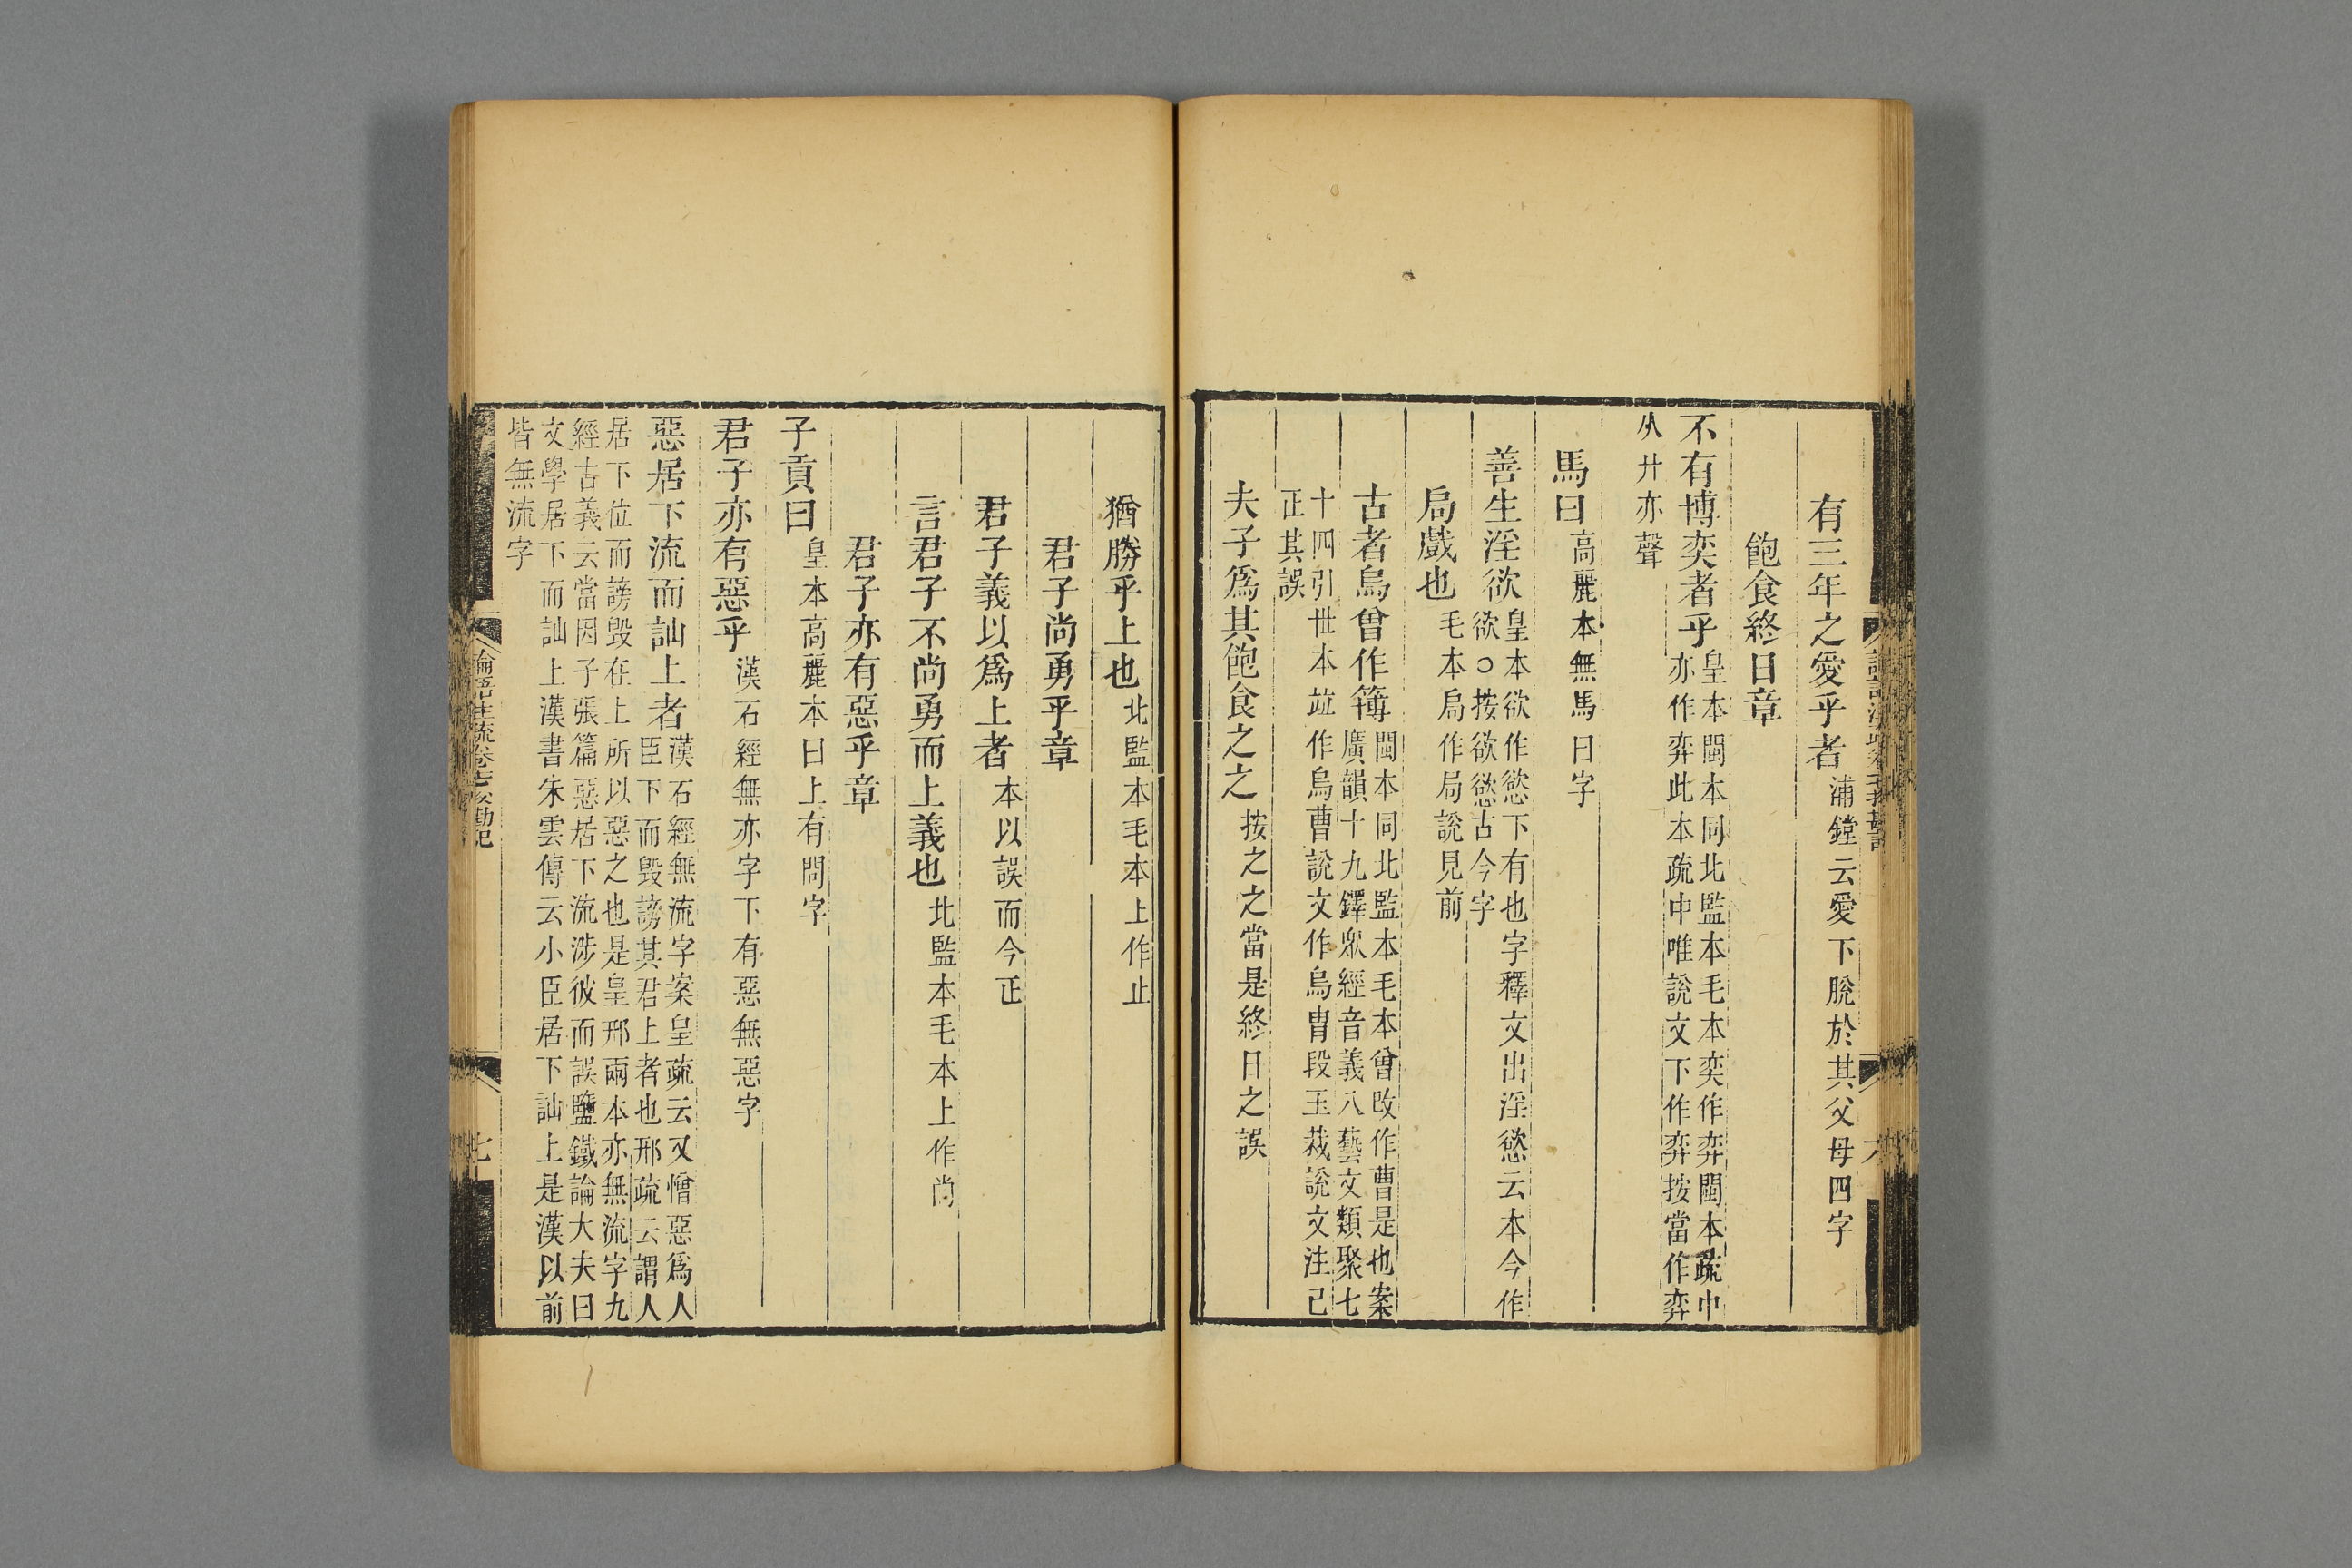 有三年之愛乎者浦鏜云愛下脫於其父母四字
飽食終日章
不有博奕者乎皇本閩本同北監本毛本奕作弈閩本疏中
亦作弈此本疏中唯說文下作弈按當作弈
从廾亦聲
馬曰高麗本無馬曰字
善生淫欲皇本欲作慾下有也字釋文出淫慾云本今作
欲○按欲慾古今字
局戲也毛本局作局說見前
古者烏曾作簙閩本同北監本毛本曾改作曹是也案
廣韻十九鐸眾經音義八藝文類聚七
十四引世本竝作烏曹說文作烏曺段玉裁說文注已
正其誤
夫子爲其飽食之之按之之當是終日之誤
猶勝乎上也北監本毛本上作止
君子尚勇乎章
君子義以爲上者本以誤而今正
言君子不尚勇而上義也北監本毛本上作尚
君子亦有惡乎章
子貢曰皇本高麗本曰上有問字
君子亦有惡乎漢石經無亦字下有惡無惡字
惡居下流而訕上者漢石經無流字案皇疏云又憎惡爲人
臣下而毀謗其君上者也邢疏云謂人
居下位而謗毀在上所以惡之也是皇邢兩本亦無流字九
經古義云當因子張篇惡居下流涉彼而誤鹽鐵論大夫曰
文學居下而訕上漢書朱雲傳云小臣居下訕上是漢以前
皆無流字
論語注疏卷十七挍勘記
七